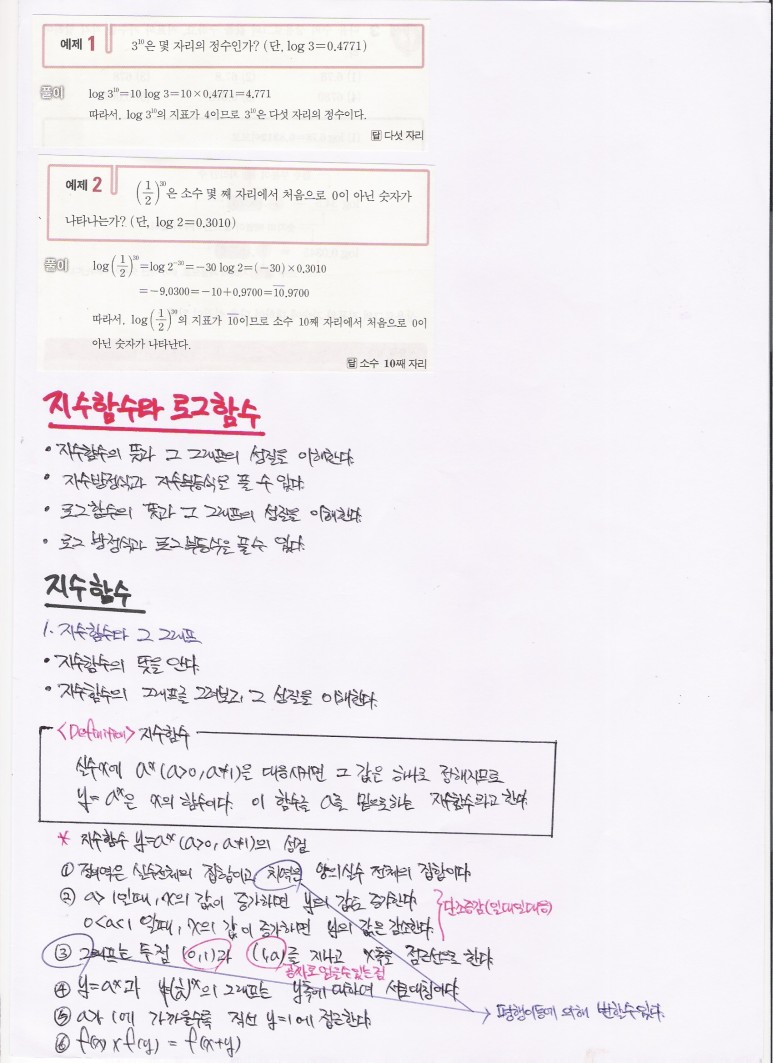 예제 1 3¹⁰은 몇 자리의 정수인가? (단, log 3=0.4771)
풀이 log 3¹⁰=10 log 3=10×0.4771=4.771
따라서, log 3¹⁰의 지표가 4이므로 3¹⁰은 다섯 자리의 정수이다.
답 다섯 자리
예제 2 (1/2)³⁰은 소수 몇 째 자리에서 처음으로 0이 아닌 숫자가
나타나는가? (단, log 2=0.3010)
풀이 log(1/2)³⁰=log 2⁻³⁰=−30 log 2=(−30)×0.3010
=−9.0300=−10+0.9700=1̅0̅.9700
따라서, log(1/2)³⁰의 지표가 1̅0̅이므로 소수 10째 자리에서 처음으로 0이
아닌 숫자가 나타난다.
답 소수 10째 자리
지수함수와 로그함수
• 지수함수의 뜻과 그 그래프의 성질을 이해한다.
• 지수방정식과 지수부등식을 풀 수 있다.
• 로그함수의 뜻과 그 그래프의 성질을 이해한다.
• 로그 방정식과 로그부등식을 풀수 있다.
지수함수
1. 지수함수와 그 그래프
• 지수함수의 뜻을 안다.
• 지수함수의 그래프를 그려보고, 그 성질을 이해한다.
<Definition> 지수함수
실수x에 aˣ(a>0, a≠1)은 대응시키면 그 값은 하나로 정해지므로
y=aˣ은 x의 함수이다. 이 함수를 a를 밑으로하는 지수함수라고 한다.
* 지수함수 y=aˣ(a>0, a≠1)의 성질
① 정의역은 실수전체의 집합이고, 치역은 양의실수 전체의 집합이다.
② a>1일때, x의 값이 증가하면 y의 값도 증가한다.
0<a<1 일때, x의 값이 증가하면 y의 값은 감소한다. } 단조증감(일대일대응)
③ 그래프는 두점 (0,1)과 (1,a)를 지나고 x축을 점근선으로 한다.
공짜로 얻을수 있는 점
④ y=aˣ과 y=(1/a)ˣ의 그래프는 y축에 대하여 서로대칭이다.
→ 평행이동에 의해 변할수있다.
⑤ a가 1에 가까울수록 직선 y=1에 접근한다.
⑥ f(x)×f(y) = f(x+y)